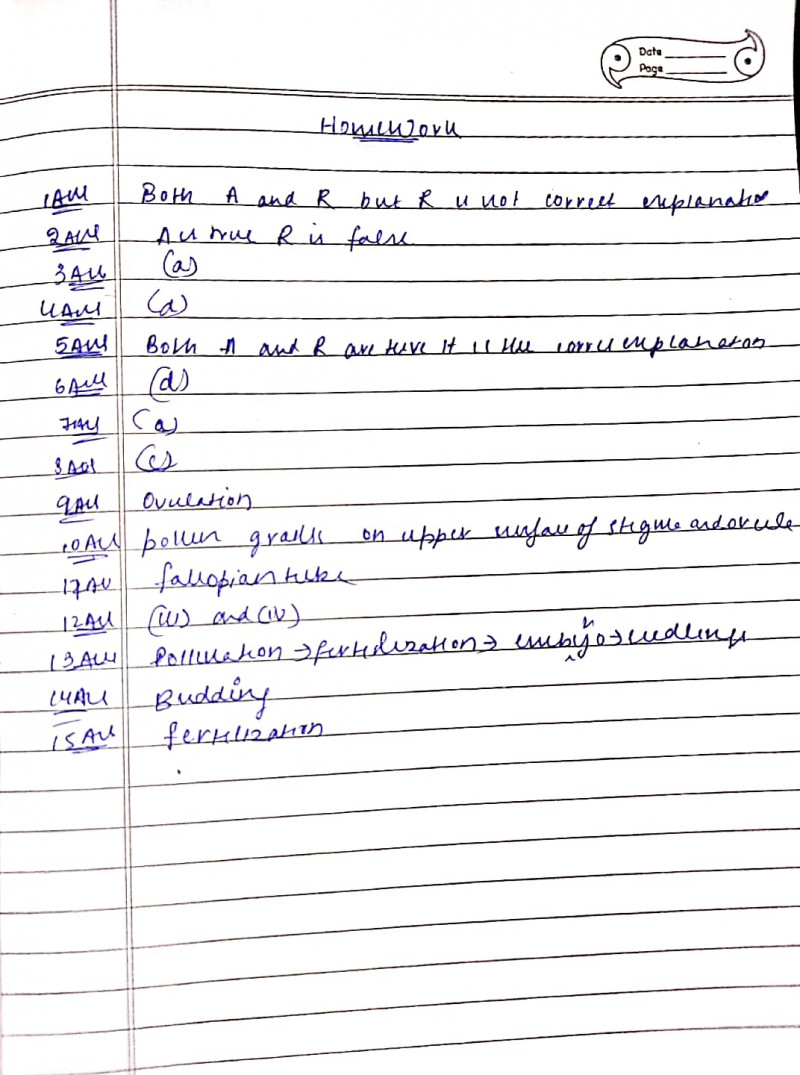 Date
Page
Homework
1 Ans Both A and R but R is not correct explanation
2 Ans A is true R is false
3 Ans (a)
4 Ans (a)
5 Ans Both A and R are true it is the correct explanation
6 Ans (d)
7 Ans (a)
8 Ans (c)
9 Ans Ovulation
10 Ans pollen grails on upper surface of stigma and ovule
17 Ans fallopian tube
12 Ans (iii) and (iv)
13 Ans Pollination → fertilization → embryo → seedlings
14 Ans Budding
15 Ans fertilization